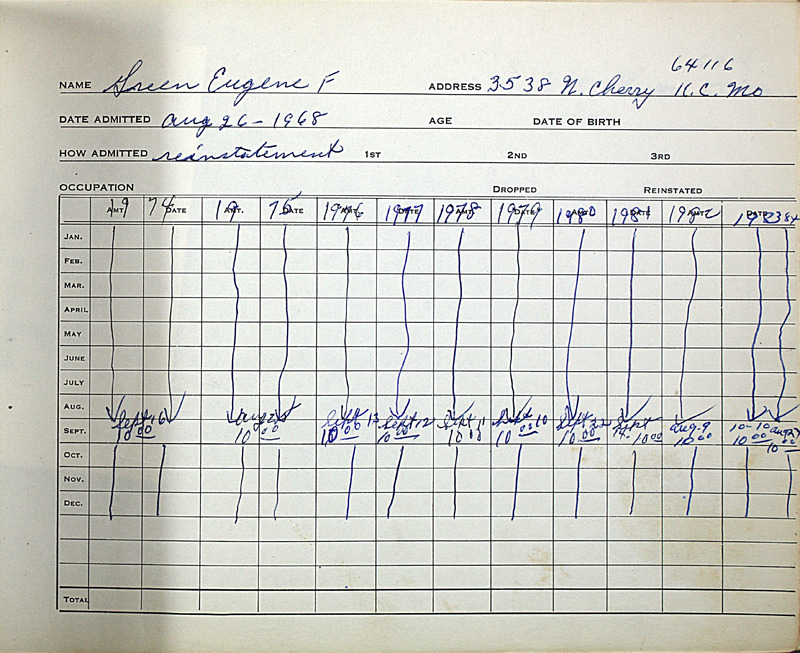 64116
NAME Green Eugene F ADDRESS 3538 N. Cherry K.C. Mo
DATE ADMITTED Aug 26-1968 AGE DATE OF BIRTH
HOW ADMITTED reinstatement 1ST 2ND 3RD
OCCUPATION DROPPED REINSTATED
AMT. 19 74 DATE AMT. 19 75 DATE 1976 1977 1978 1979 1980 1981 1982 1983 84
JAN.
FEB.
MAR.
APRIL
MAY
JUNE
JULY
AUG.
Sept 16 Aug Sept 13 Sept 12 Sept 11 Sept 10 Sept 22 Sept Aug. 9 10-10 Aug
SEPT. 10 00 10 00 10 00 10 00 10 00 10 00 10 00 14 10 00 10 00 10 00 10 00
OCT.
NOV.
DEC.
TOTAL